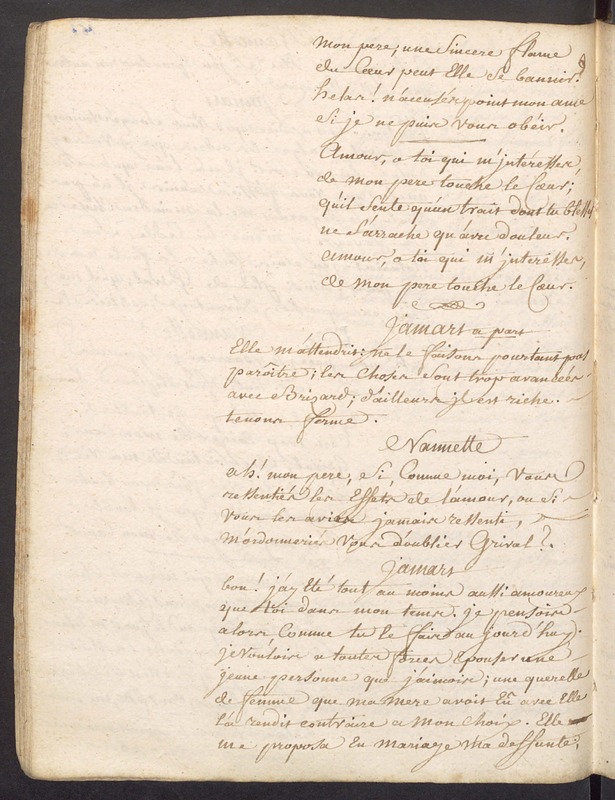 mon pere, une sincere flame
du Cœur peut Elle se bannir.
helas! n'accusés point mon ame
si je ne puis vous obéir.
Amour, o toi qui m'jntéresses
de mon pere touche le Cœur;
qu'il sente qu'un trait dont tu blesses
ne s'arrache qu'avec douleur.
amour, o toi qui m'jnteresses,
de mon pere touche le Cœur.
jamars a part
Elle m'attendrit: ne le faisons pourtant pas
paroître; les choses sont trop avancées
avec Brizard; d'ailleurs jl est riche.
tenons ferme.
Nannette
ah! mon pere, si, Comme moi, vous
ressentiés les Effets de l'amour, ou si
vous les aviez jamais ressenti,
m'ordonneriés vous d'oublier Grival?
jamars
bon! j'ay Eté tout au moins aussi amoureux
que toi dans mon tems. je pensois
alors Comme tu le fais au jourd'huy.
je voulois a toutes forces Epouser une
jeune personne que j'aimois; une querelle
de femme que ma mere avoit Eû avec Elle
la rendit contraire a mon choix. Elle
me proposa En mariage ma deffunte;